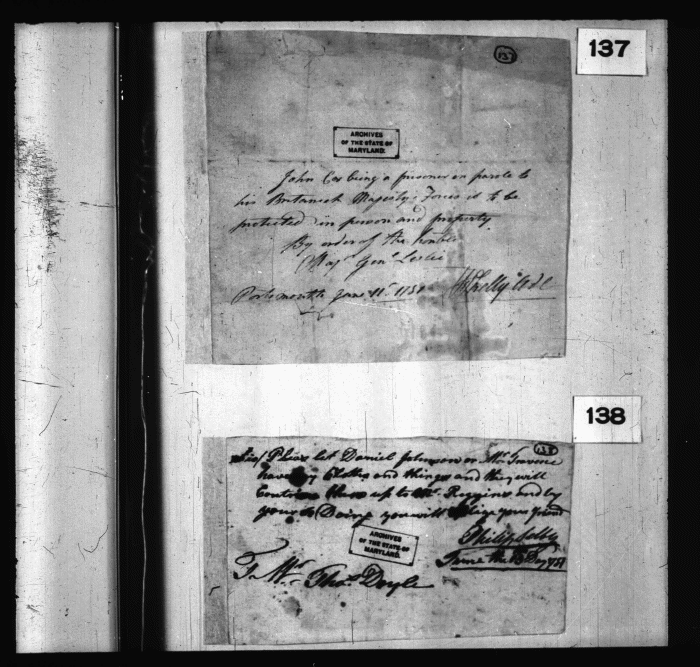 137
137
ARCHIVES
OF THE STATE OF
MARYLAND.
John Cox being a prisoner on parole to
his Britanick Majesty's Forces is to be
protected in person and property
By order of the honble
Maj Genl Leslie
Portsmouth June 11th
138
138
Sir/ Pleas let Daniel Johnson or Mr
have my Cloths and things and they will
them up to Mr. Riggins and by
your so Doing you will oblige your friend
Philip Selby
June the 13 Day
ARCHIVES
OF THE STATE OF
MARYLAND.
To Mr. Thos. Doyle